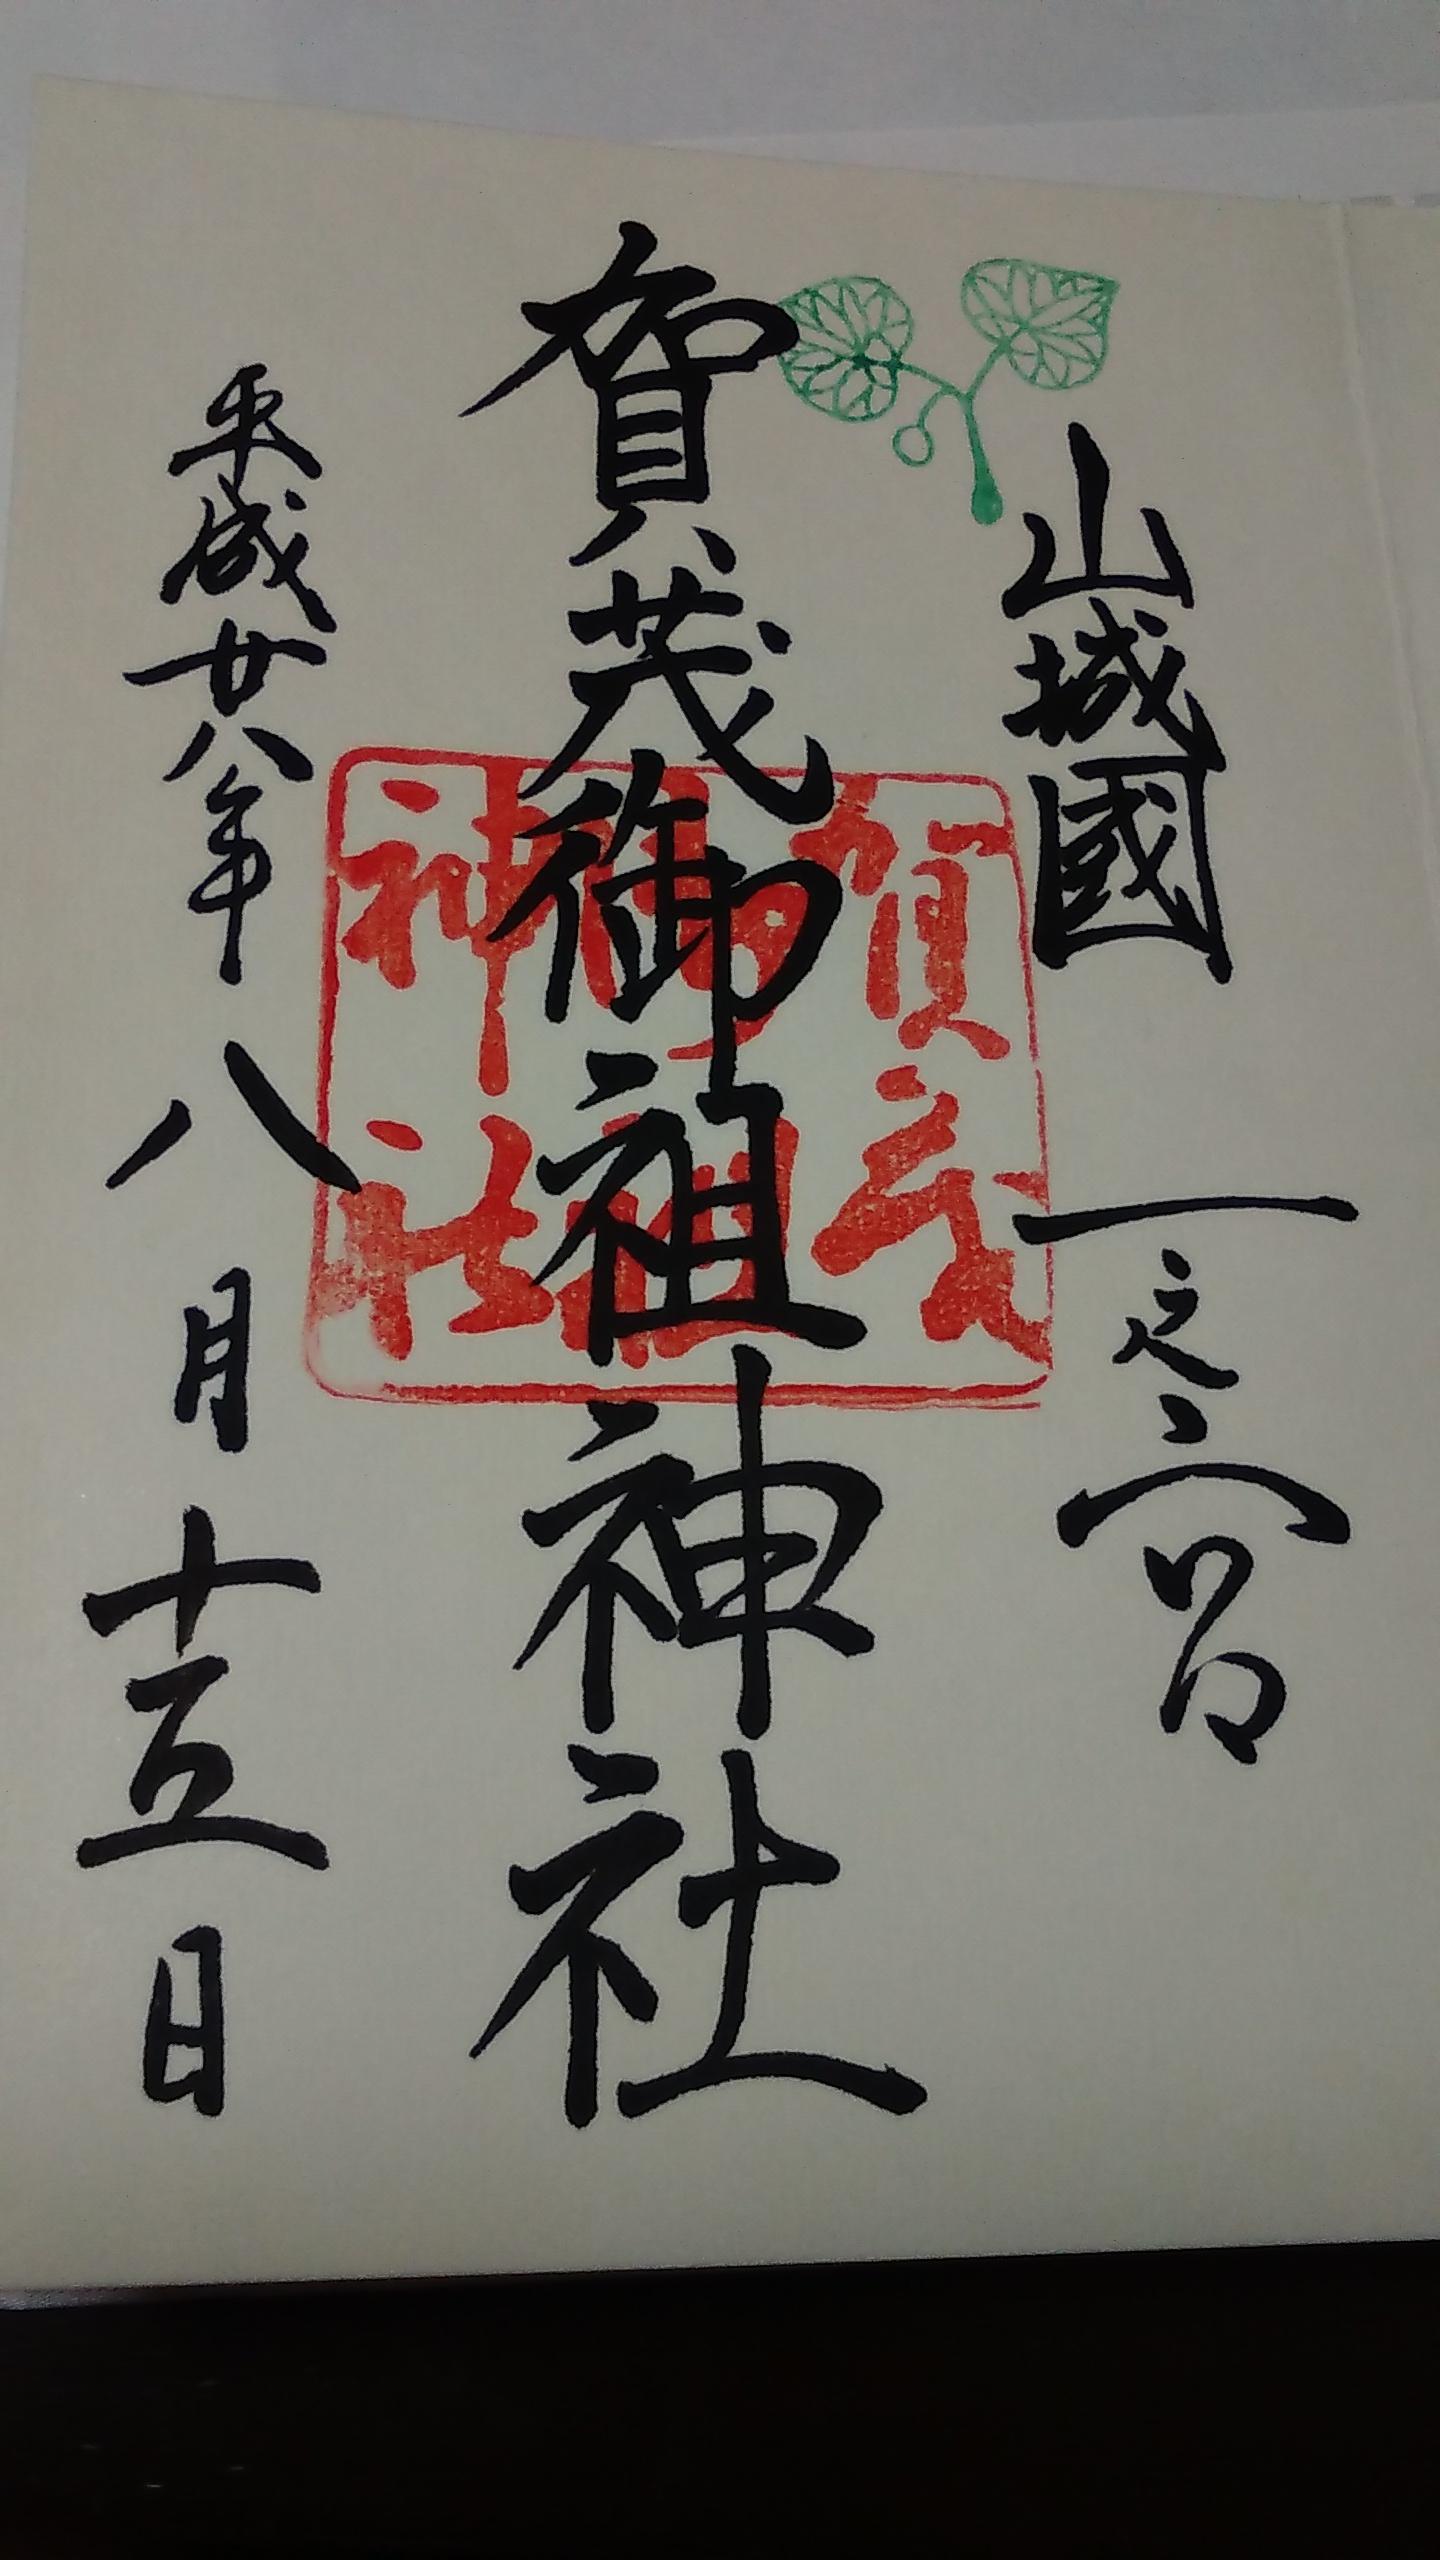 山城國 一之宮
賀茂御祖神社
賀茂
御祖
神社
平成廿八年八月十五日